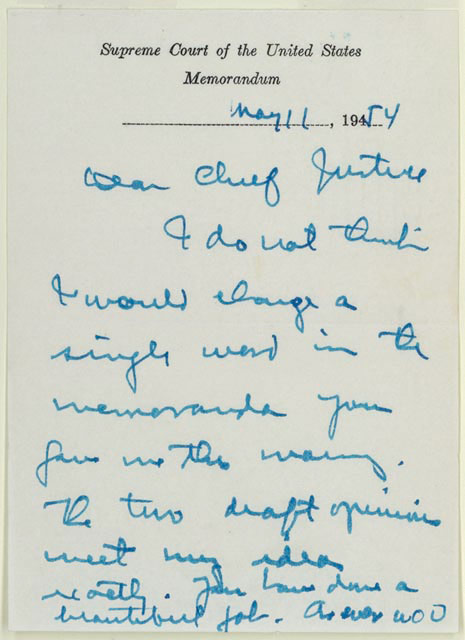 Supreme Court of the United States
Memorandum
May 11, 1954
Dear Chief Justice
I do not think
I would change a
single word in the
memoranda you
gave me this morning.
The two draft opinions
meet my ideas
exactly. You have done a
beautiful job. As ever WOD